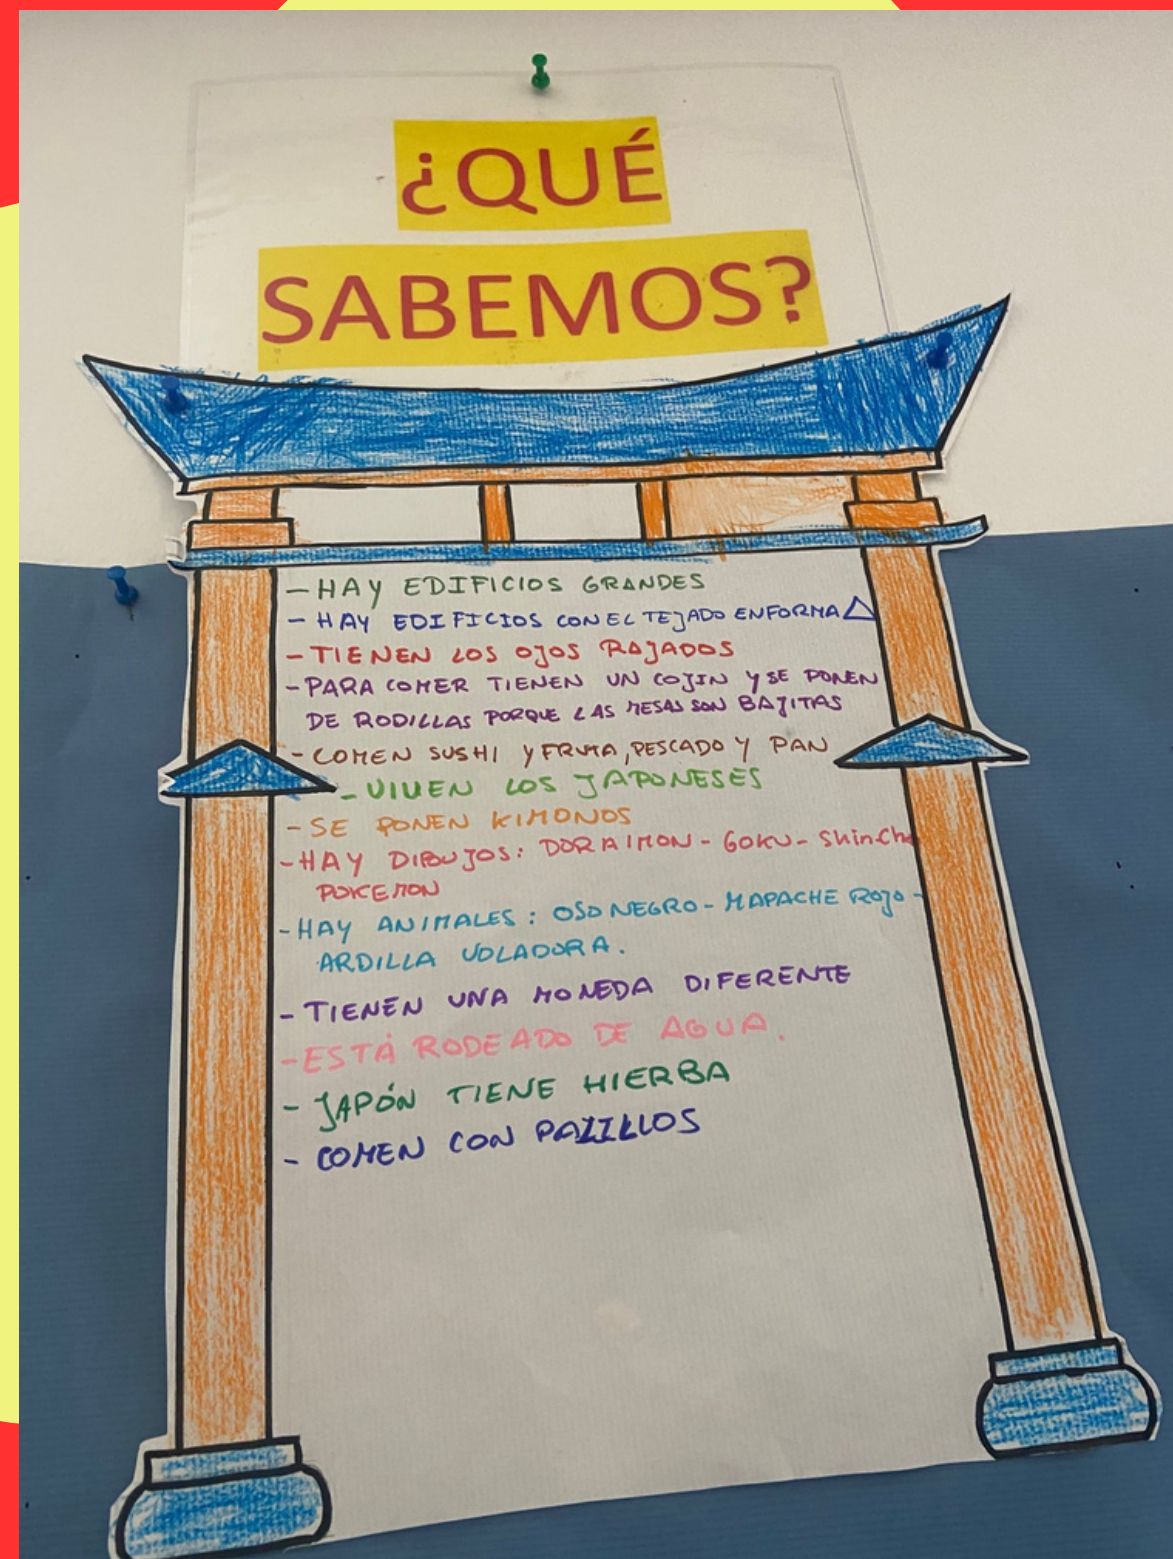 ¿QUÉ
SABEMOS?
- HAY EDIFICIOS GRANDES
- HAY EDIFICIOS CON EL TEJADO EN FORMA
- TIENEN LOS OJOS RAJADOS
- PARA COMER TIENEN UN COJIN Y SE PONEN
DE RODILLAS PORQUE LAS MESAS SON BAJITAS
- COMEN SUSHI Y FRUTA, PESCADO Y PAN
- VIVEN LOS JAPONESES
- SE PONEN KIMONOS
- HAY DIBUJOS: DORAIMON - GOKU - Shin-Cha
POKEMON
- HAY ANIMALES: OSO NEGRO - MAPACHE ROJO -
ARDILLA VOLADORA.
- TIENEN UNA MONEDA DIFERENTE
- ESTÁ RODEADO DE AGUA.
- JAPÓN TIENE HIERBA
- COMEN CON PALILLOS